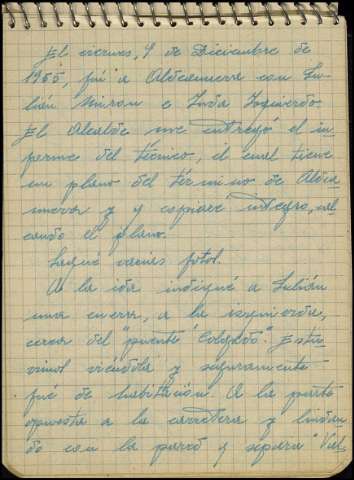 El viernes, 9 de Diciembre de
1955, fuí a Aldeanueva con Ju-
lián Miran e Inda Izquierdo
El Alcalde me entregó el in-
forme del técnico, el cual tiene
un plano del término de Aldea
nueva y y copiaré íntegro, cal
cando el plano.
Saqué varias fotos.
A la ida indiqué a Julián
una cueva, a la izquierda,
cerca del "puente Colgado". Estu-
vimos viéndola y seguramente
fué de habitación. A la parte
opuesta a la carretera y lindan
do con la pared y separa